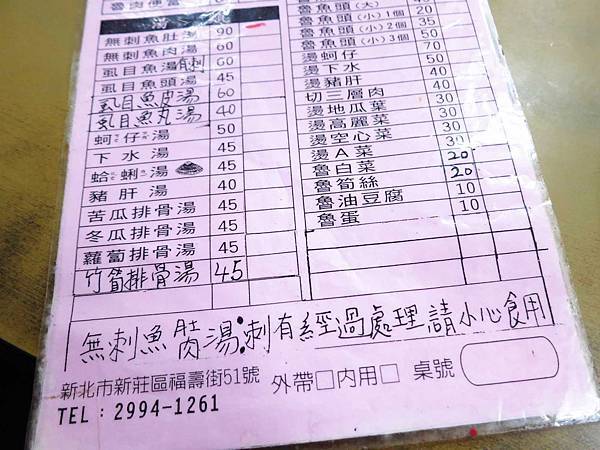 魯肉便當
湯 類
無刺魚肚湯 90
無刺魚肉湯 60
虱目魚湯有刺 60
虱目魚頭湯 45
虱目魚皮湯 60
虱目魚丸湯 40
蚵仔湯 50
下水湯 45
蛤蜊湯 45
豬肝湯 40
苦瓜排骨湯 45
冬瓜排骨湯 45
蘿蔔排骨湯 45
竹筍排骨湯 45
魯魚頭(大) 40
魯魚頭(小)1個 20
魯魚頭(小)2個 35
魯魚頭(小)3個 50
燙蚵仔 70
燙下水 50
燙豬肝 40
切三層肉 40
燙地瓜葉 30
燙高麗菜 30
燙空心菜 30
燙A菜 30
魯白菜 20
魯筍絲 20
魯油豆腐 10
魯蛋 10
無刺魚肚肉湯:刺有經過處理請小心食用
新北市新莊區福壽街51號 外帶□內用□ 桌號
TEL:2994-1261